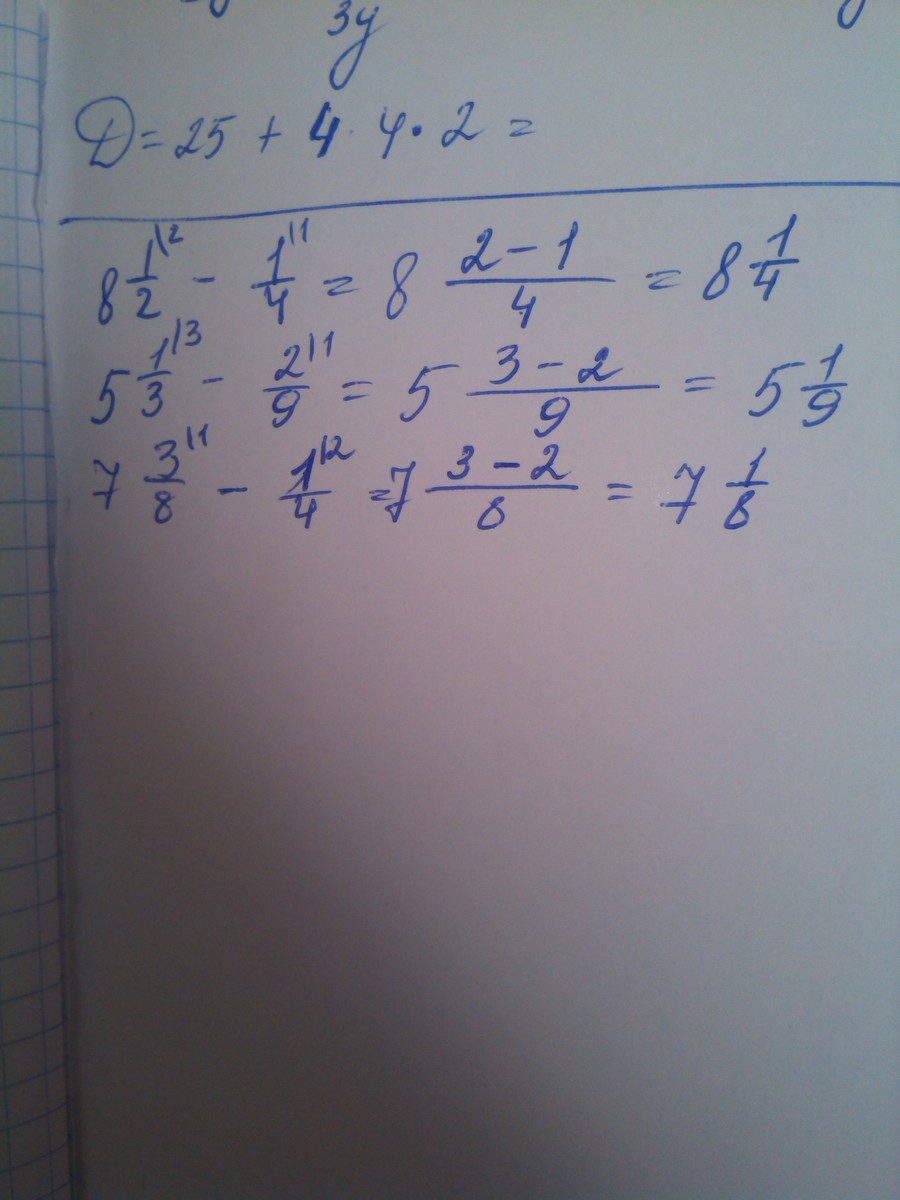 3y
D = 25 + 4 · 4 · 2 =
8 1/2 \2 - 1/4 \1 = 8 (2 - 1)/4 = 8 1/4
5 1/3 \3 - 2/9 \1 = 5 (3 - 2)/9 = 5 1/9
7 3/8 \1 - 1/4 \2 = 7 (3 - 2)/8 = 7 1/8